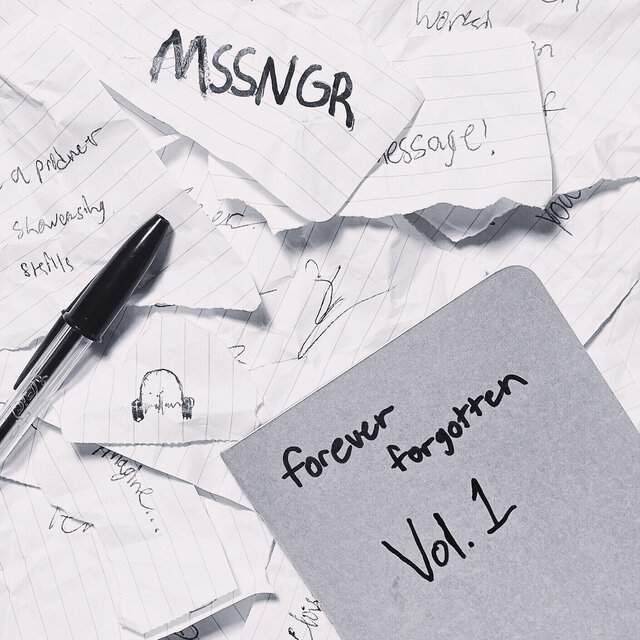 MSSNGR
essage!
a producer
showcasing
skills
you
imagine...
forever
forgotten
Vol. 1